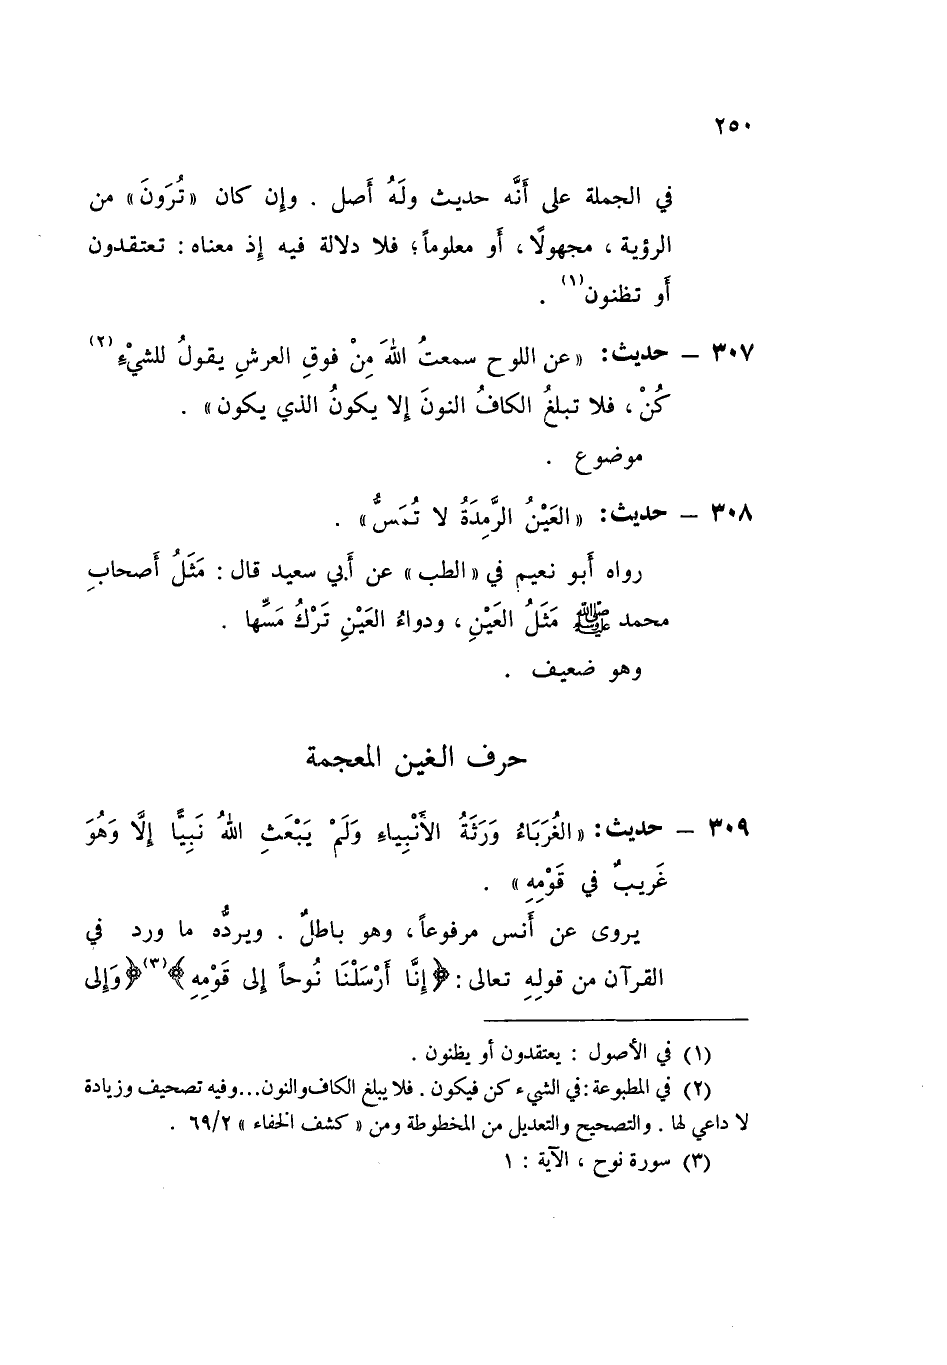 ٢٥٠
في الجملة على أَنَّه حديث ولَهُ أَصل . وإِن كان «تُرَونَ» من
الرؤية ، مجهولًا ، أَو معلوماً؛ فلا دلالة فيه إِذ معناه : تعتقدون
أَو تظنون(١) .
٣٠٧ – حديث: «عن اللوح سمعتُ اللهَ مِنْ فوقِ العرشِ يقولُ للشيْءِ(٢)
كُنْ ، فلا تبلغُ الكافُ النونَ إِلا يكونُ الذي يكون» .
موضوع .
٣٠٨ – حديث: «العَيْنُ الرَّمِدَةُ لا تُمَسُّ» .
رواه أَبو نعيم في «الطب» عن أَبي سعيد قال : مَثَلُ أَصحابِ
محمد ﷺ مَثَلُ العَيْنِ ، ودواءُ العَيْنِ تَرْكُ مَسِّها .
وهو ضعيف .
حرف الغين المعجمة
٣٠٩ – حديث: «الغُرَبَاءُ وَرَثَةُ الأَنْبِياءِ وَلَمْ يَبْعَثِ اللهُ نَبِيًّا إِلَّا وَهُوَ
غَريبٌ في قَوْمِهِ» .
يروى عن أَنس مرفوعاً، وهو باطلٌ . ويردُّه ما ورد في
القرآن من قولِهِ تعالى : ﴿إِنَّا أَرْسَلْنَا نُوحاً إِلى قَوْمِهِ﴾(٣) ﴿وَإِلى
(١) في الأصول : يعتقدون أو يظنون .
(٢) في المطبوعة : في الشيء كن فيكون . فلا يبلغ الكاف والنون... وفيه تصحيف وزيادة
لا داعي لها . والتصحيح والتعديل من المخطوطة ومن « كشف الخفاء » ٦٩/٢ .
(٣) سورة نوح ، الآية : ١